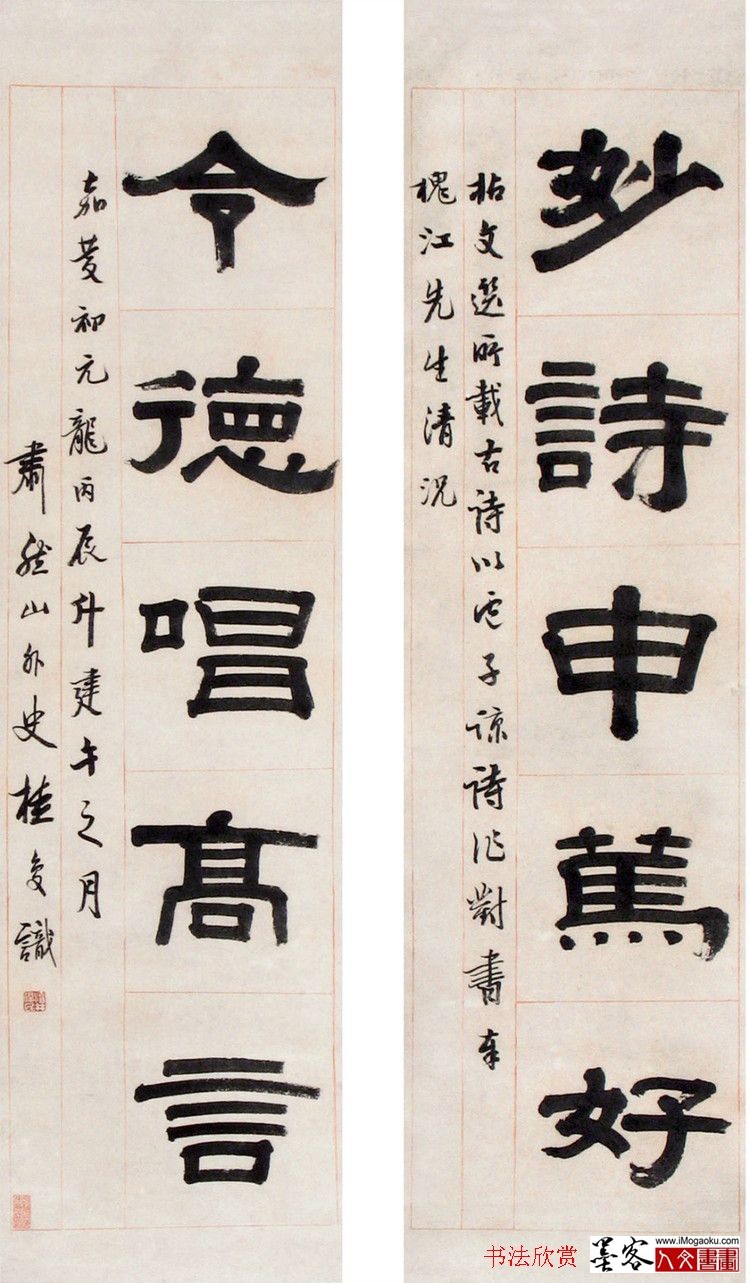 妙詩申篤好
拈文選所載古詩以盧子諒詩作對書奉
槐江先生清況
令德唱髙言
嘉慶初元龍丙辰斗建午之月
肅然山外史桂复識
书法欣赏
墨客
www.iMogaoku.com
人文書畫